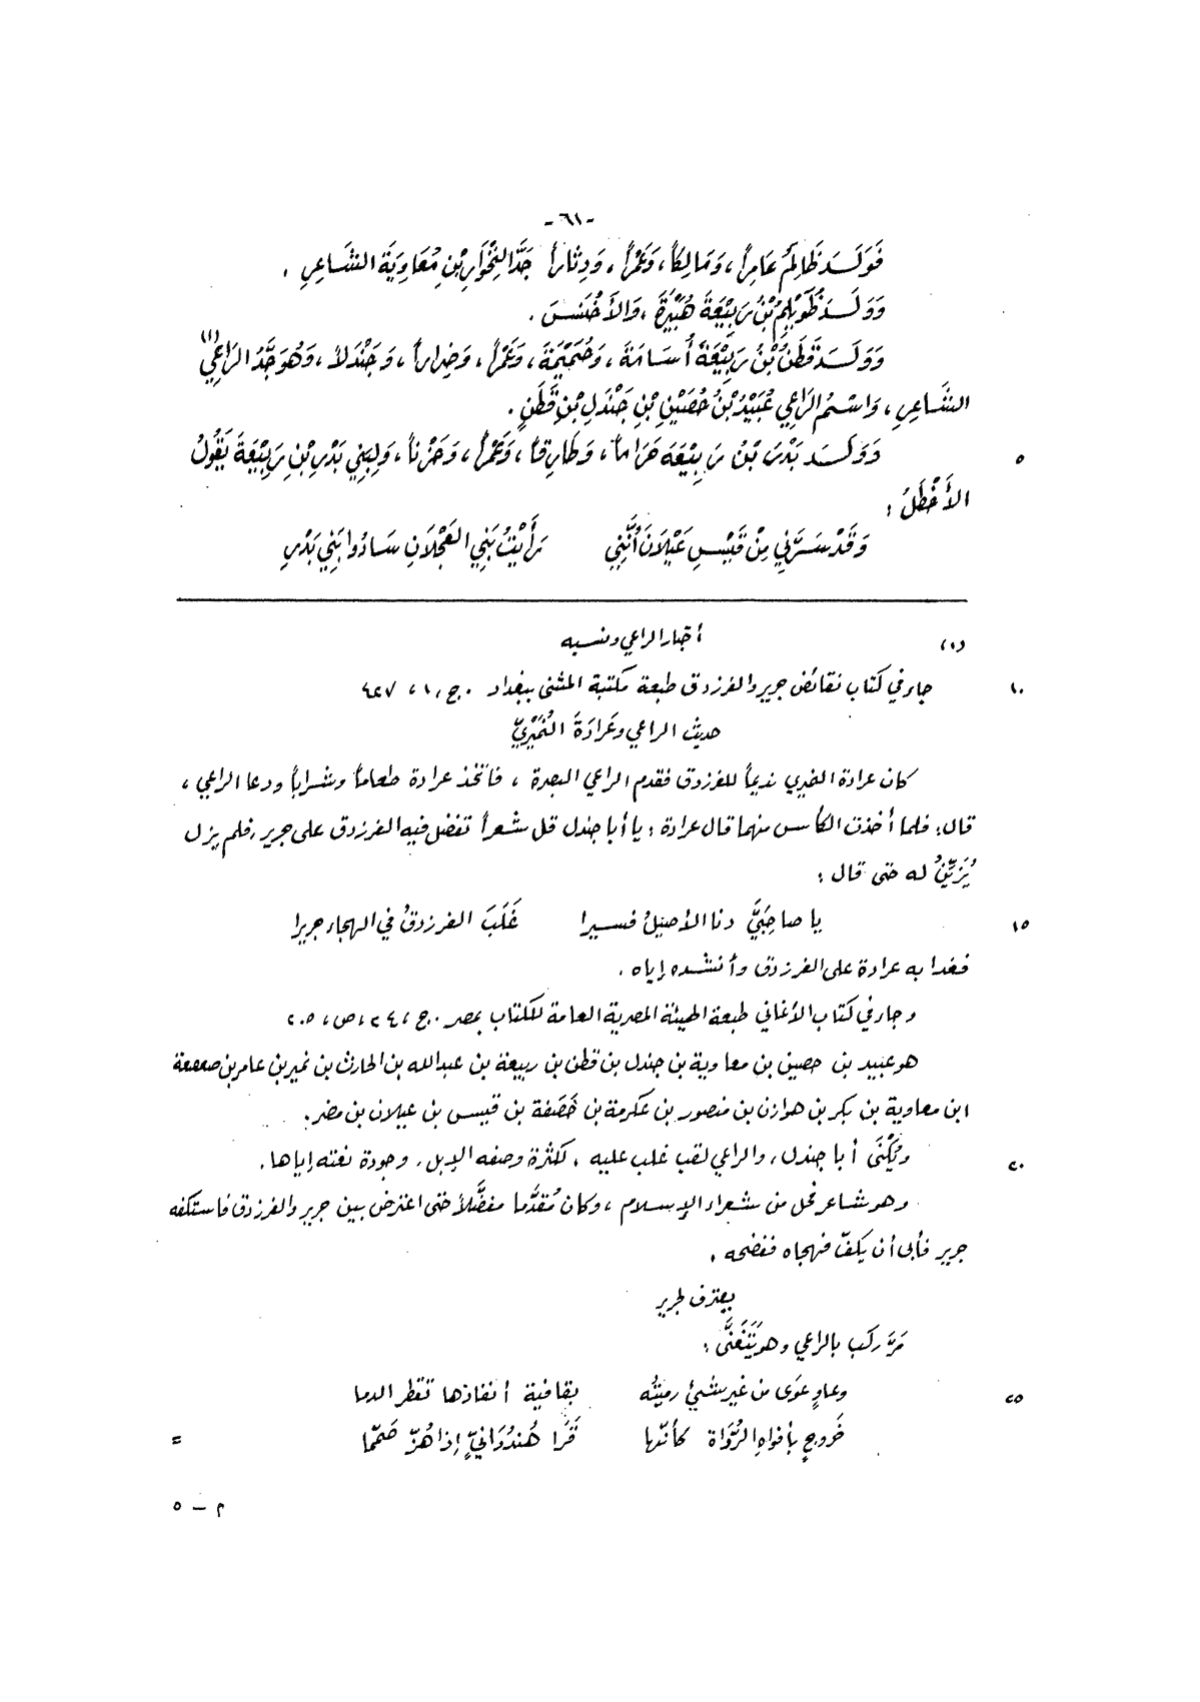 -٦١-
فَوَلَـدَ ظَالِمٌ عَامِراً ، وَمَالِكاً ، وَعَمْراً ، وَدِثَاراً جَدَّ النِّخْوَارِ بْنِ مُعَاوِيَةَ الشَّاعِرِ .
وَوَلَـدَ ظُوَيْلِمُ بْنُ رَبِيْعَةَ هُبَيْرَةَ ، وَالأَخْنَسَ .
وَوَلَـدَ قَطَنُ بْنُ رَبِيْعَةَ أُسَامَةَ ، وَحُمَيْمَةَ ، وَعَمْراً ، وَضِراراً ، وَجَنْدَلاً ، وَهُوَ جَدُّ الرَّاعِي (١)
الشَّاعِرِ ، وَاسْمُ الرَّاعِي عُبَيْدُ بْنُ حُصَيْنِ بْنِ جَنْدَلِ بْنِ قَطَنٍ .
وَوَلَـدَ بَدْرُ بْنُ رَبِيْعَةَ حَرَاماً ، وَطَارِقاً ، وَعَمْراً ، وَحَزْناً ، وَلِبَنِي بَدْرِ بْنِ رَبِيْعَةَ يَقُولُ ٥
الأَخْطَلُ :
وَقَدْ سَرَّنِي مِنْ قَيْسِ عَيْلَانَ أَنَّنِي رَأَيْتُ بَنِي العَجْلَانِ سَادُوا بَنِي بَدْرِ
(١) أخبار الراعي ونسبه
جاء في كتاب نقائض جرير والفرزدق طبعة مكتبة المثنى ببغداد . ج ، ١ ، ٤٢٧ ١٠
حديث الراعي وعَرَادَةَ النُمَيْرِيّ
كان عرادة النميري نديماً للفرزدق فقدم الراعي البصرة ، فاتخذ عرادة طعاماً وشراباً ودعا الراعي ،
قال : فلما أخذت الكأس منهما قال عرادة : يا أبا جندل قل شعراً تفضل فيه الفرزدق على جرير ، فلم يزل
يُزَيِّنُ له حتى قال :
يا صاحِبَيَّ دنا الأصيلُ فسيرا غَلَبَ الفرزدقُ في الهجاء جريرا ١٥
فغدا به عرادة على الفرزدق وأنشده إياه .
وجاء في كتاب الأغاني طبعة الهيئة المصرية العامة للكتاب بمصر . ج ، ٢٤ ، ص ، ٢٠٥
هو عبيد بن حصين بن معاوية بن جندل بن قطن بن ربيعة بن عبدالله بن الحارث بن نمير بن عامر بن صعصعة
ابن معاوية بن بكر بن هوازن بن منصور بن عكرمة بن خَصَفة بن قيس بن عيلان بن مضر .
ويُكْنَى أبا جندل ، والراعي لقب غلب عليه ، لكثرة وصفه الإبل ، وجودة نعته إياها . ٢٠
وهو شاعر فحل من شعراء الإسلام ، وكان مُقدَّما مفضَّلاً حتى اعترض بين جرير والفرزدق فاستكفه
جرير فأبى أن يكفّ فهجاه ففضحه .
يعترف لجرير
مَرَّ ركب بالراعي وهو يَتَغَنَّى :
وعاوٍ عَوَى من غير شيءٍ رميتُه بقافية أنفاذها تقطر الدما ٢٥
خَروجٍ بأفواهِ الرُّوَاة كأنّها قَرَا هُنْدُوَانيٍّ إذا هُزّ صَمّما =
م - ٥